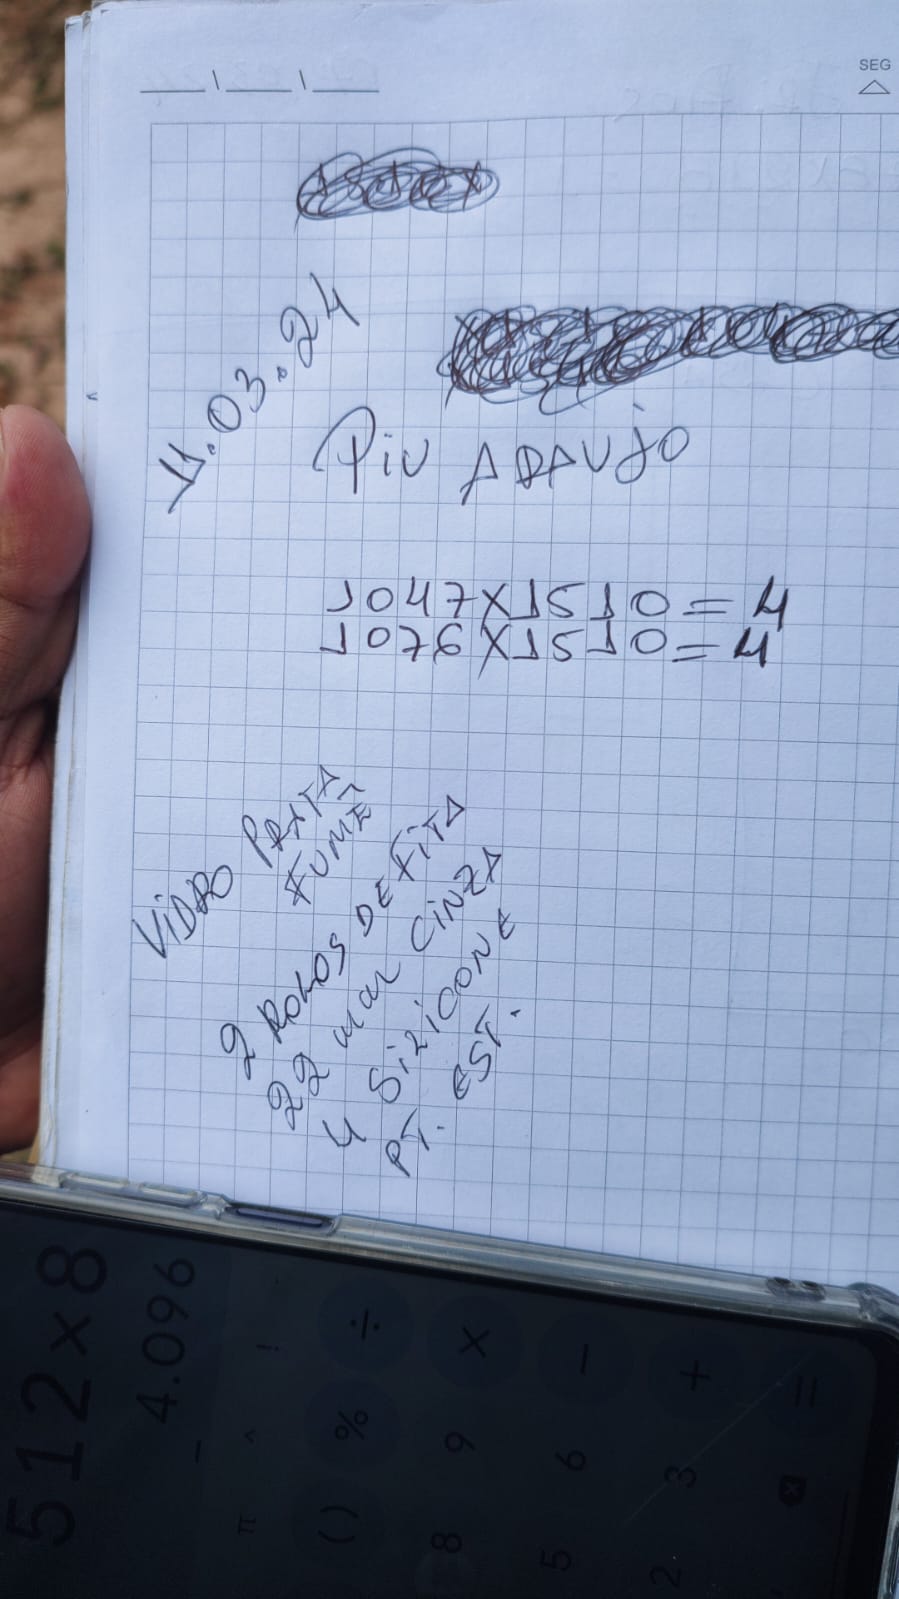 SEG
11.03.24
Piu ARAUJO
1047X1510=4
1076X1510=4
VIDRO PRATA
FUMÊ
2 ROLOS DE FITA
22 CINZA
4 SILICONE
PT. EST.
512×8
4.096
! ÷ × − + =
^ % 9 6 3
π ( ) 8 5 2